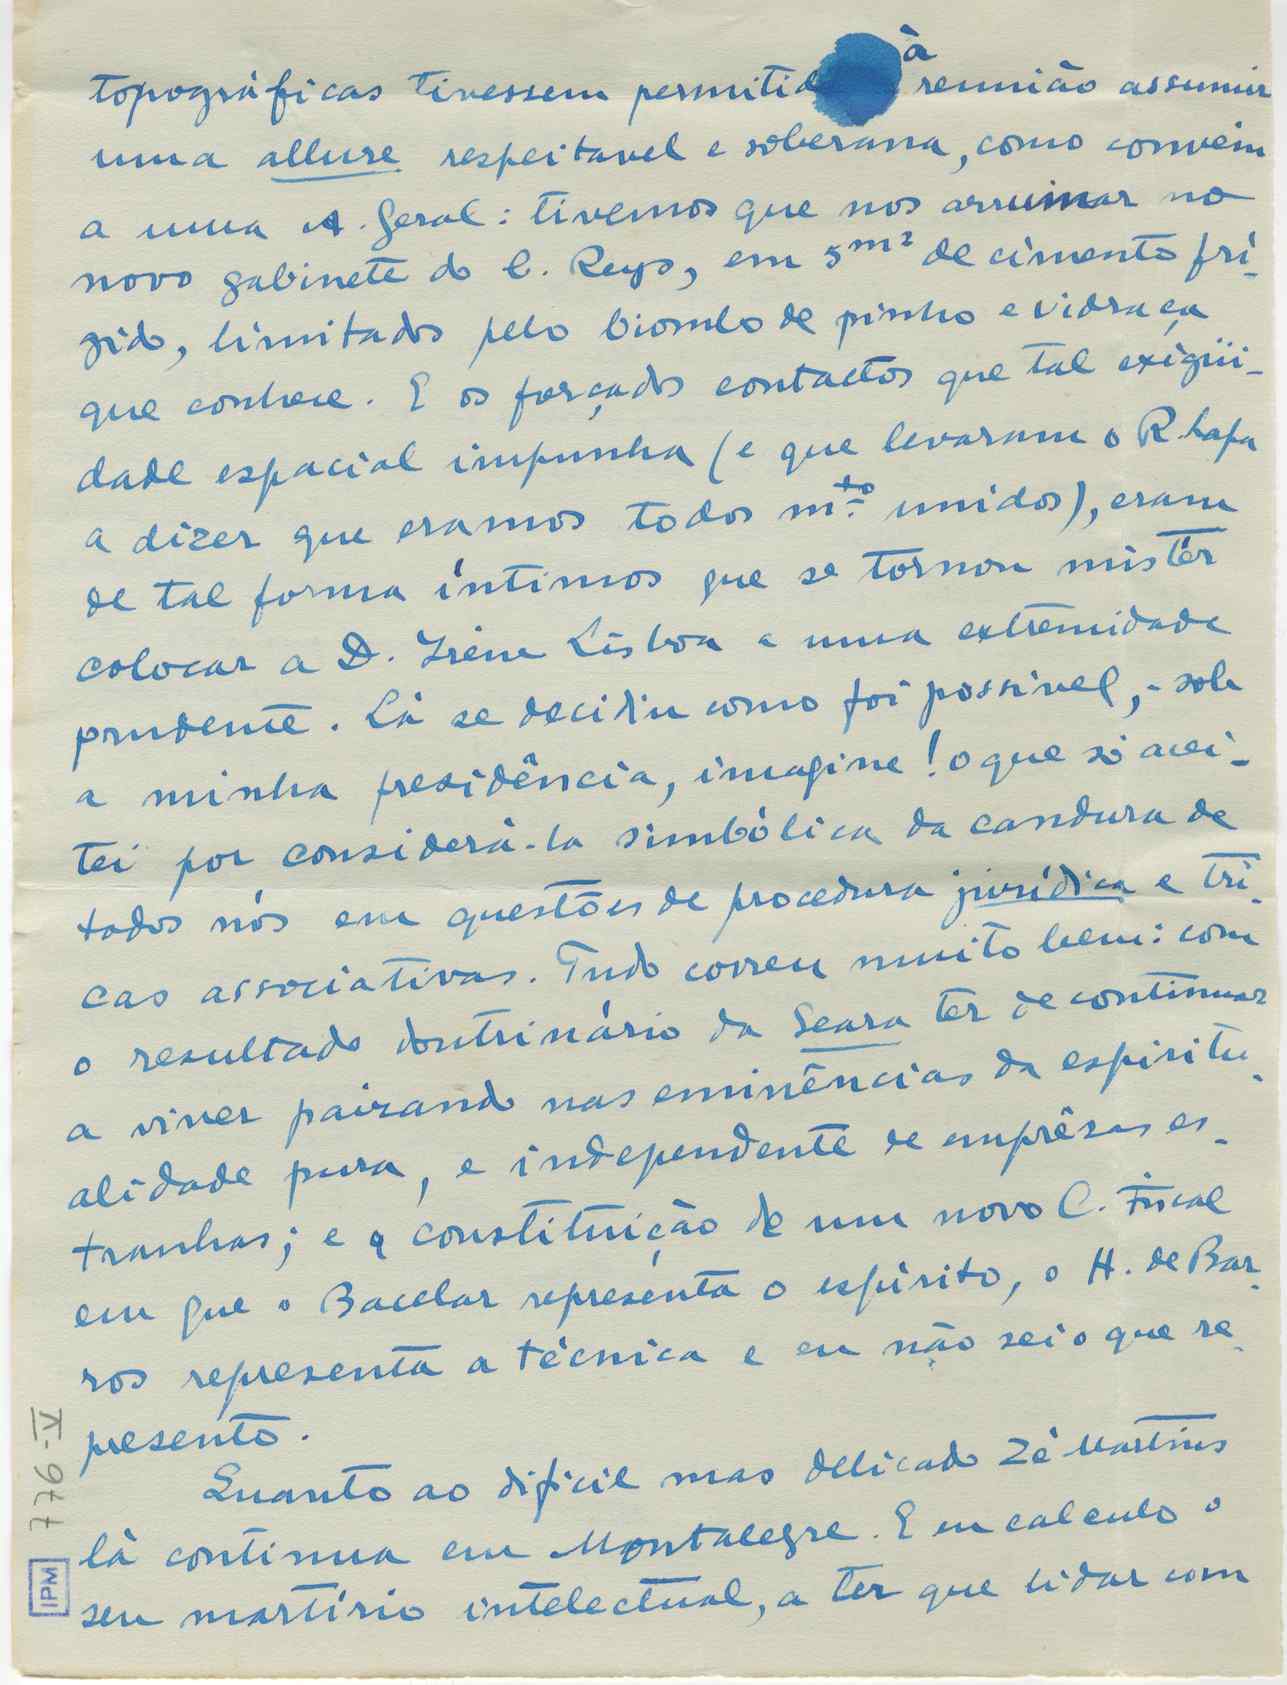 topográficas tivessem permitido à reunião assumir
uma allure respeitavel e soberana, como convém
a uma A. Geral: tivemos que nos arrumar no
novo gabinete do C. Reys, em 5 m² de cimento fri-
gido, limitados pelo biombo de pinho e vidraça
que conhece. E os forçados contactos que tal exigüi-
dade espacial impunha (e que levaram o R. Lapa
a dizer que eramos todos mto. unidos), eram
de tal forma íntimos que se tornou mistér
colocar a D. Irene Lisboa a uma extremidade
prudente. Lá se decidiu como foi possivel, - sob
a minha presidência, imagine! o que só acei-
tei por considerá-la simbólica da candura de
todos nós em questões de procedura jurídica e tri-
cas associativas. Tudo correu muito bem: com
o resultado doutrinário da Seara ter de continuar
a viver pairando nas eminências da espiritu-
alidade pura, e independente de emprêsas es-
tranhas; e a constituição de um novo C. Fiscal
em que o Bacelar representa o espírito, o H. de Bar-
ros representa a técnica e eu não sei o que re-
presento.
Quanto ao dificil mas delicado Zé Martins
lá continua em Montalegre. E eu calculo o
seu martírio intelectual, a ter que lidar com
776-V
IPM